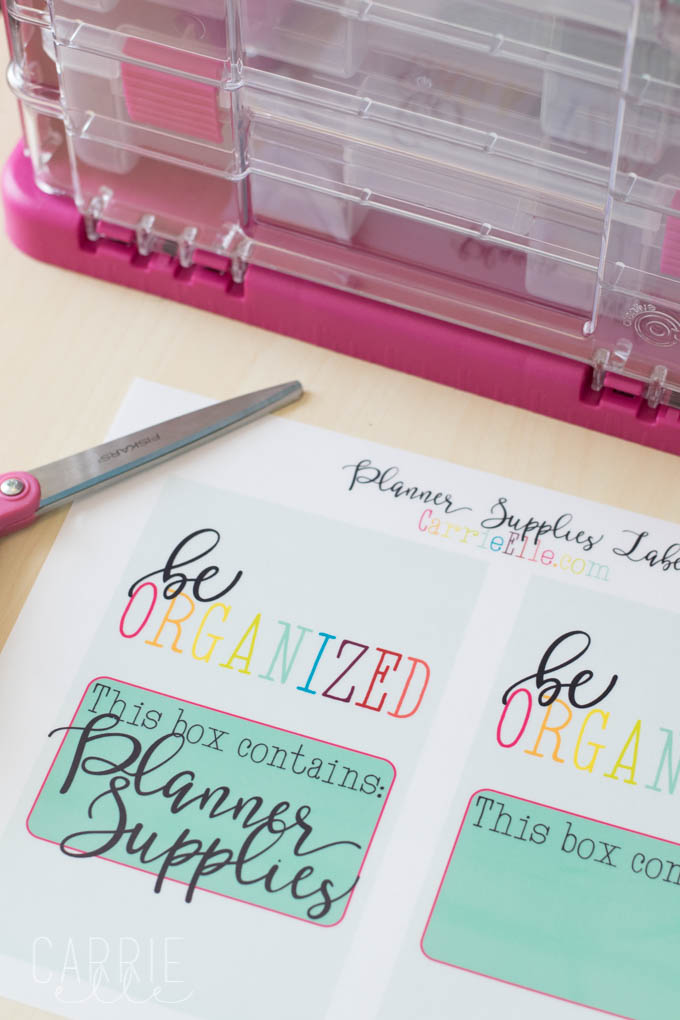 FISKARS
Planner Supplies Labe
CarrieElle.com
be
ORGANIZED
This box contains:
Planner
Supplies
be
ORGAN
This box conta
CARRIE
elle